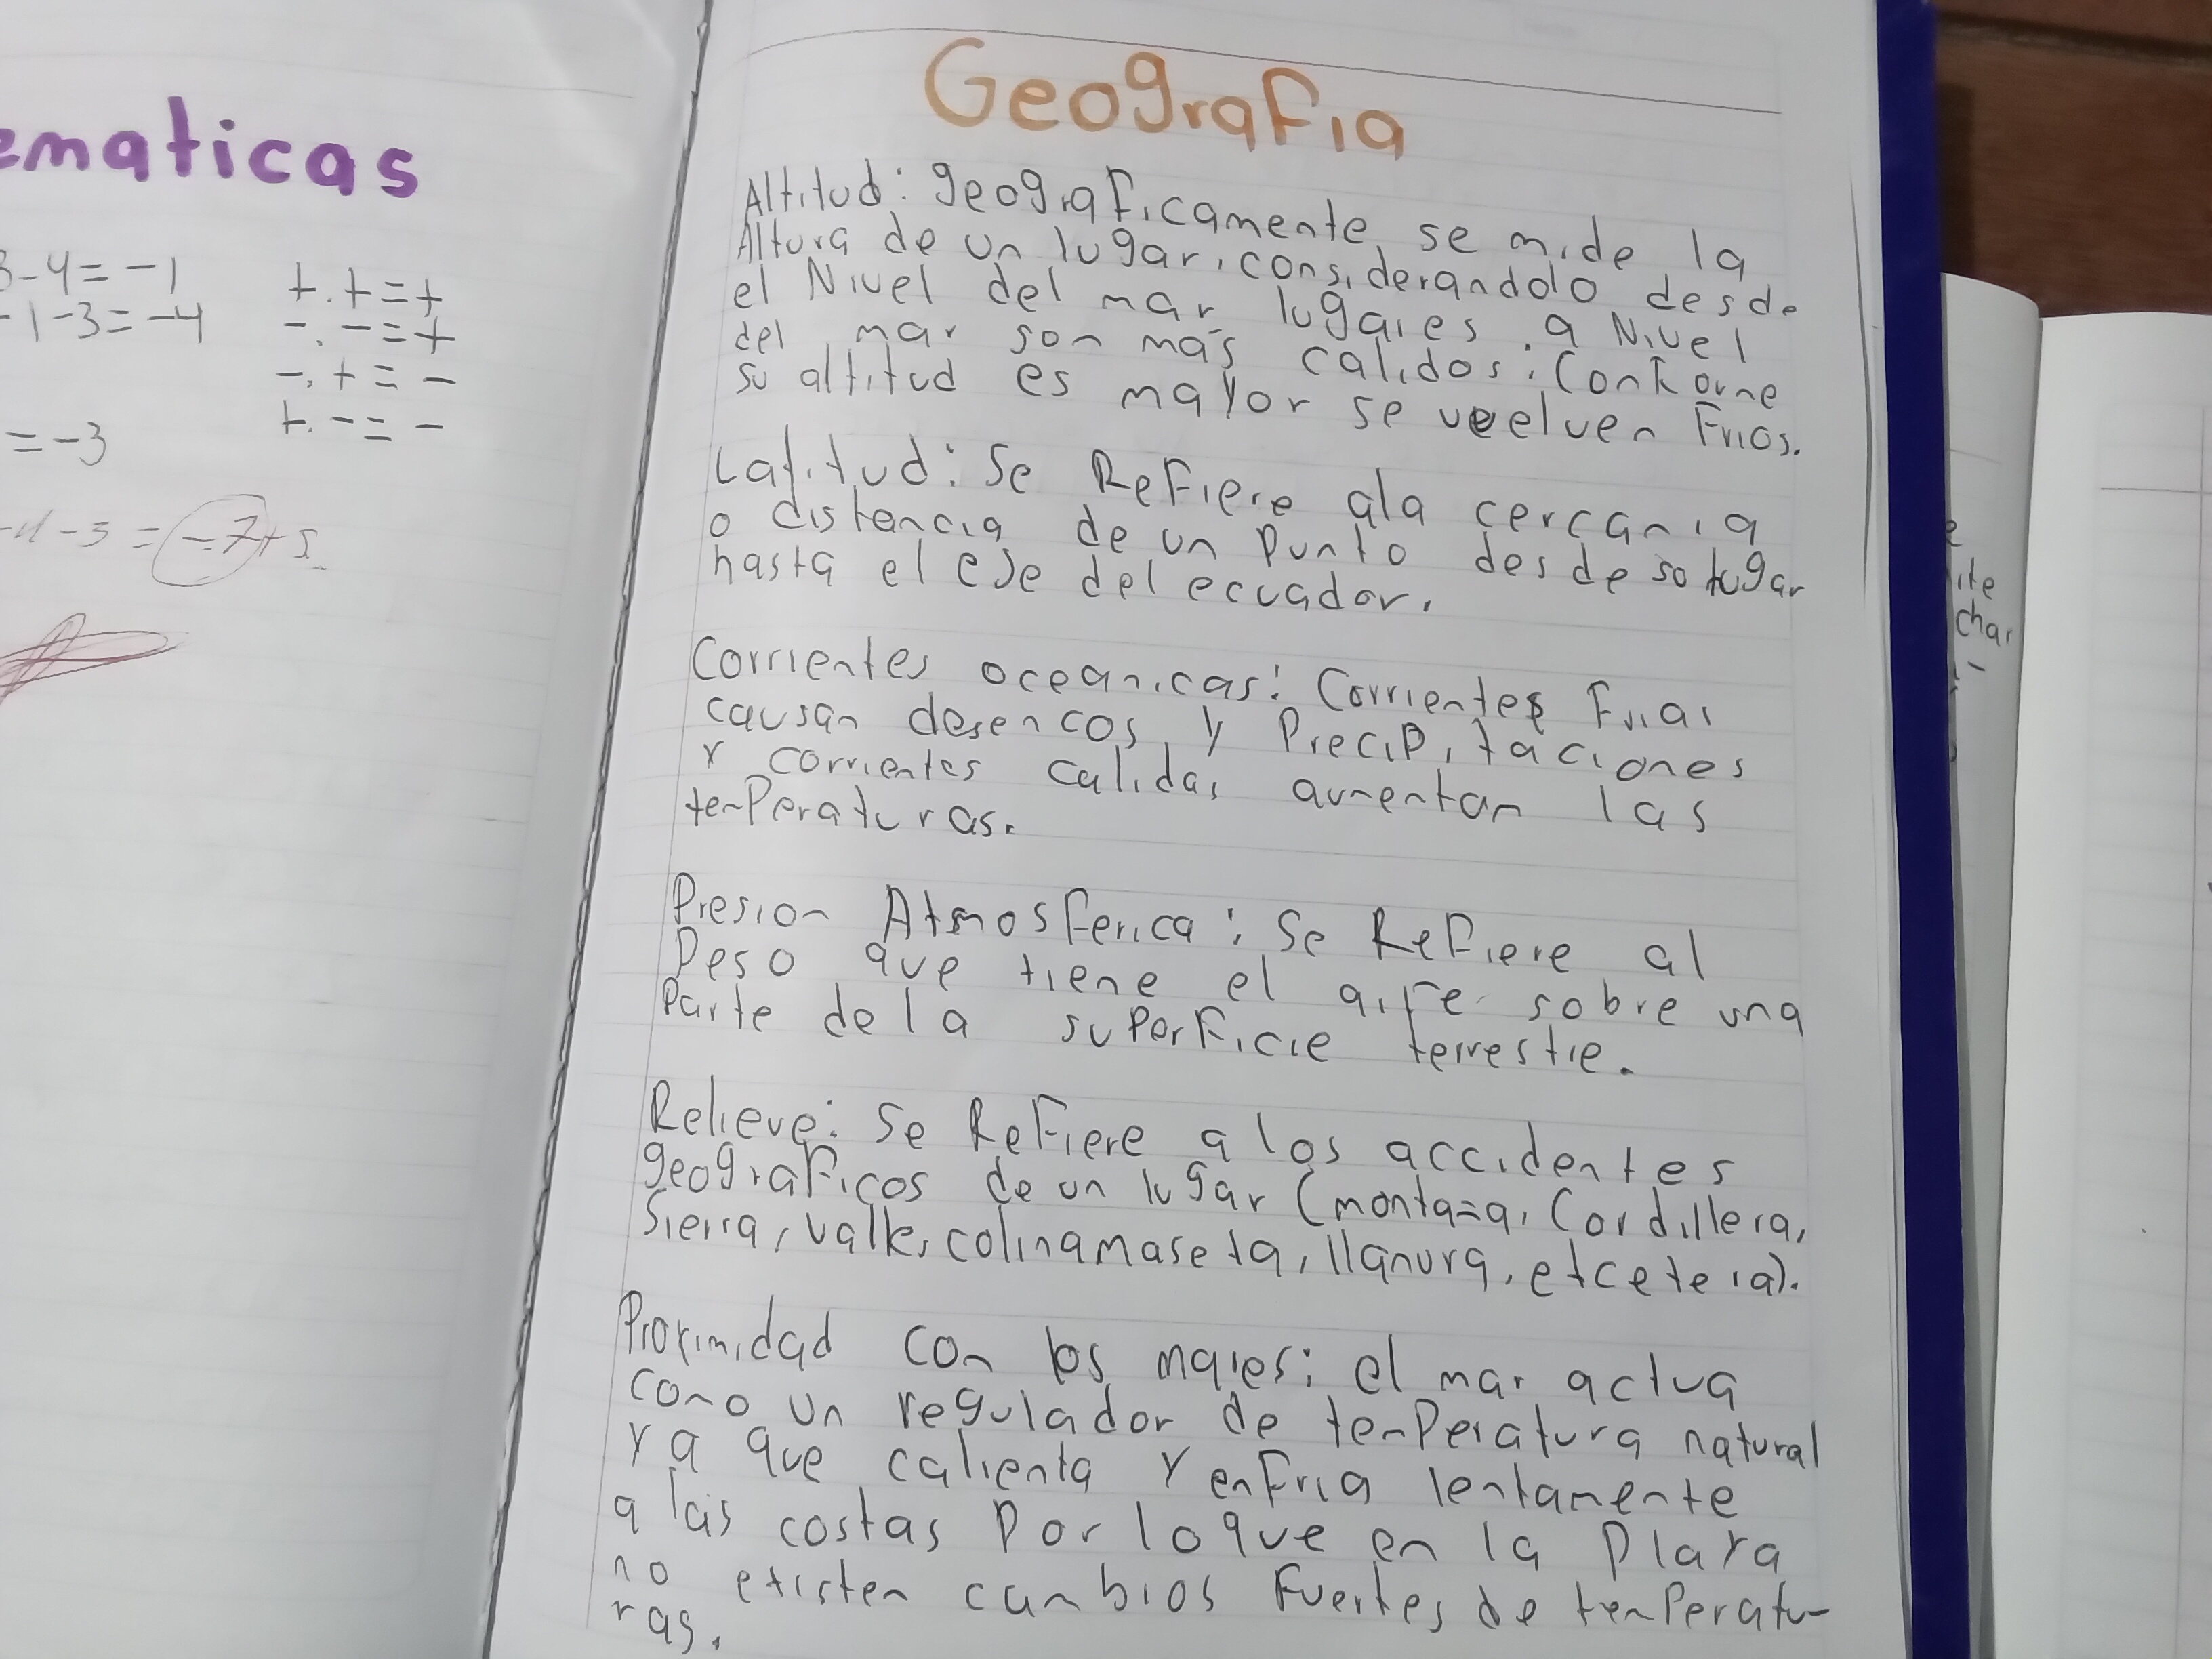 ematicas
3-4=-1
-1-3=-4
=-3
-4-3=-7+5
+.+=+
-.-=+
-.+=-
+.-=-
Geografia
Altitud: geograficamente se mide la
Altura de un lugar, considerandolo desde
el Nivel del mar lugares a Nivel
del mar son más calidos: Conforme
su altitud es mayor se veelven Frios.
Latitud: Se Refiere ala cercania
o distancia de un punto desde so lugar
hasta el eje del ecuador.
Corrientes oceanicas: Corrientes Frias
causan desencos y Precipitaciones
y corrientes calidas aumentan las
temperaturas.
Presion Atmosferica: Se Refiere al
Peso que tiene el aire sobre una
Parte de la superficie terrestre.
Relieve: Se Refiere a los accidentes
geograficos de un lugar (montaña, Cordillera,
Sierra, valle, colinamaseta, llanura, etcetera).
Proximidad con los mares: el mar actua
como un regulador de temperatura natural
ya que calienta y enfria lentamente
a las costas por lo que en la playa
no existen cambios fuertes de temperatu-
ras.
ite
char
-